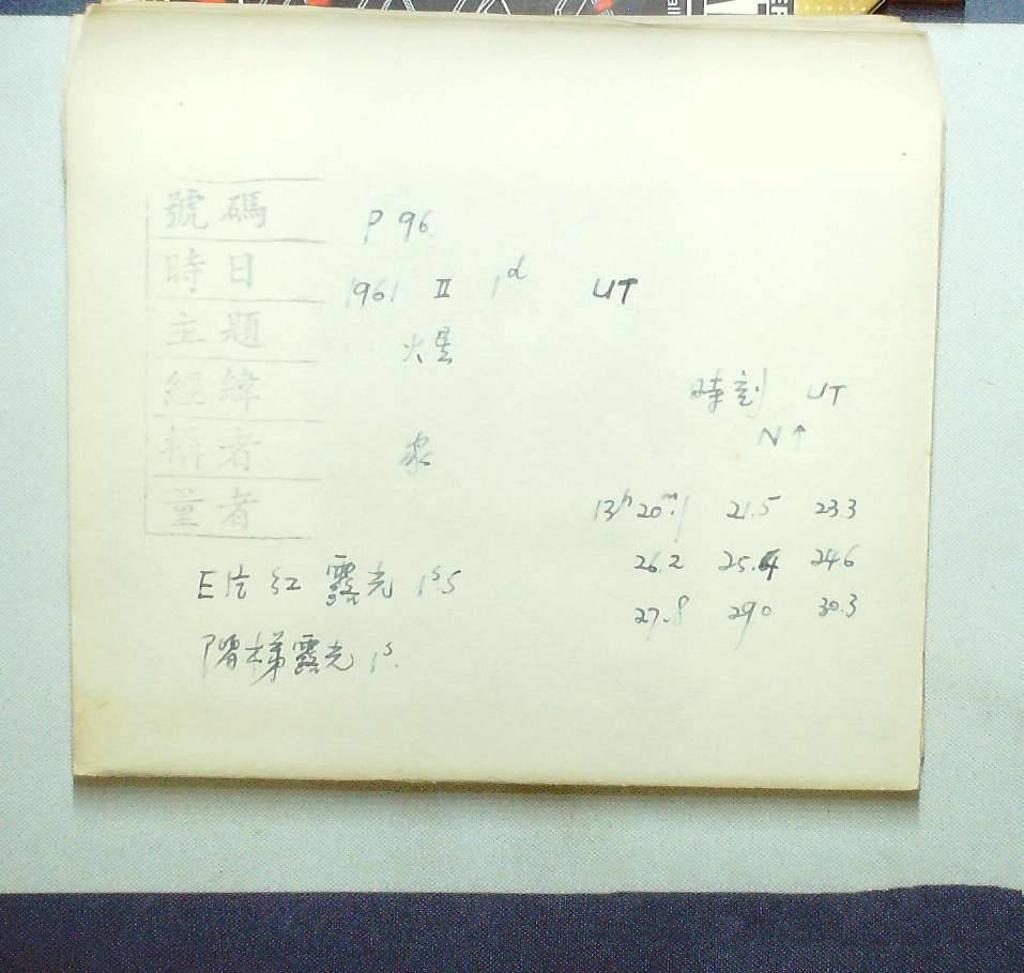 號碼 P 96
時日 1961 II 1d UT
主題 火星
經緯
時刻 UT
N↑
者
量者
13h 20m.1 21.5 23.3
26.2 25.4 24.6
27.8 29.0 30.3
E片 紅 露光 1s.5
階梯露光 1s.